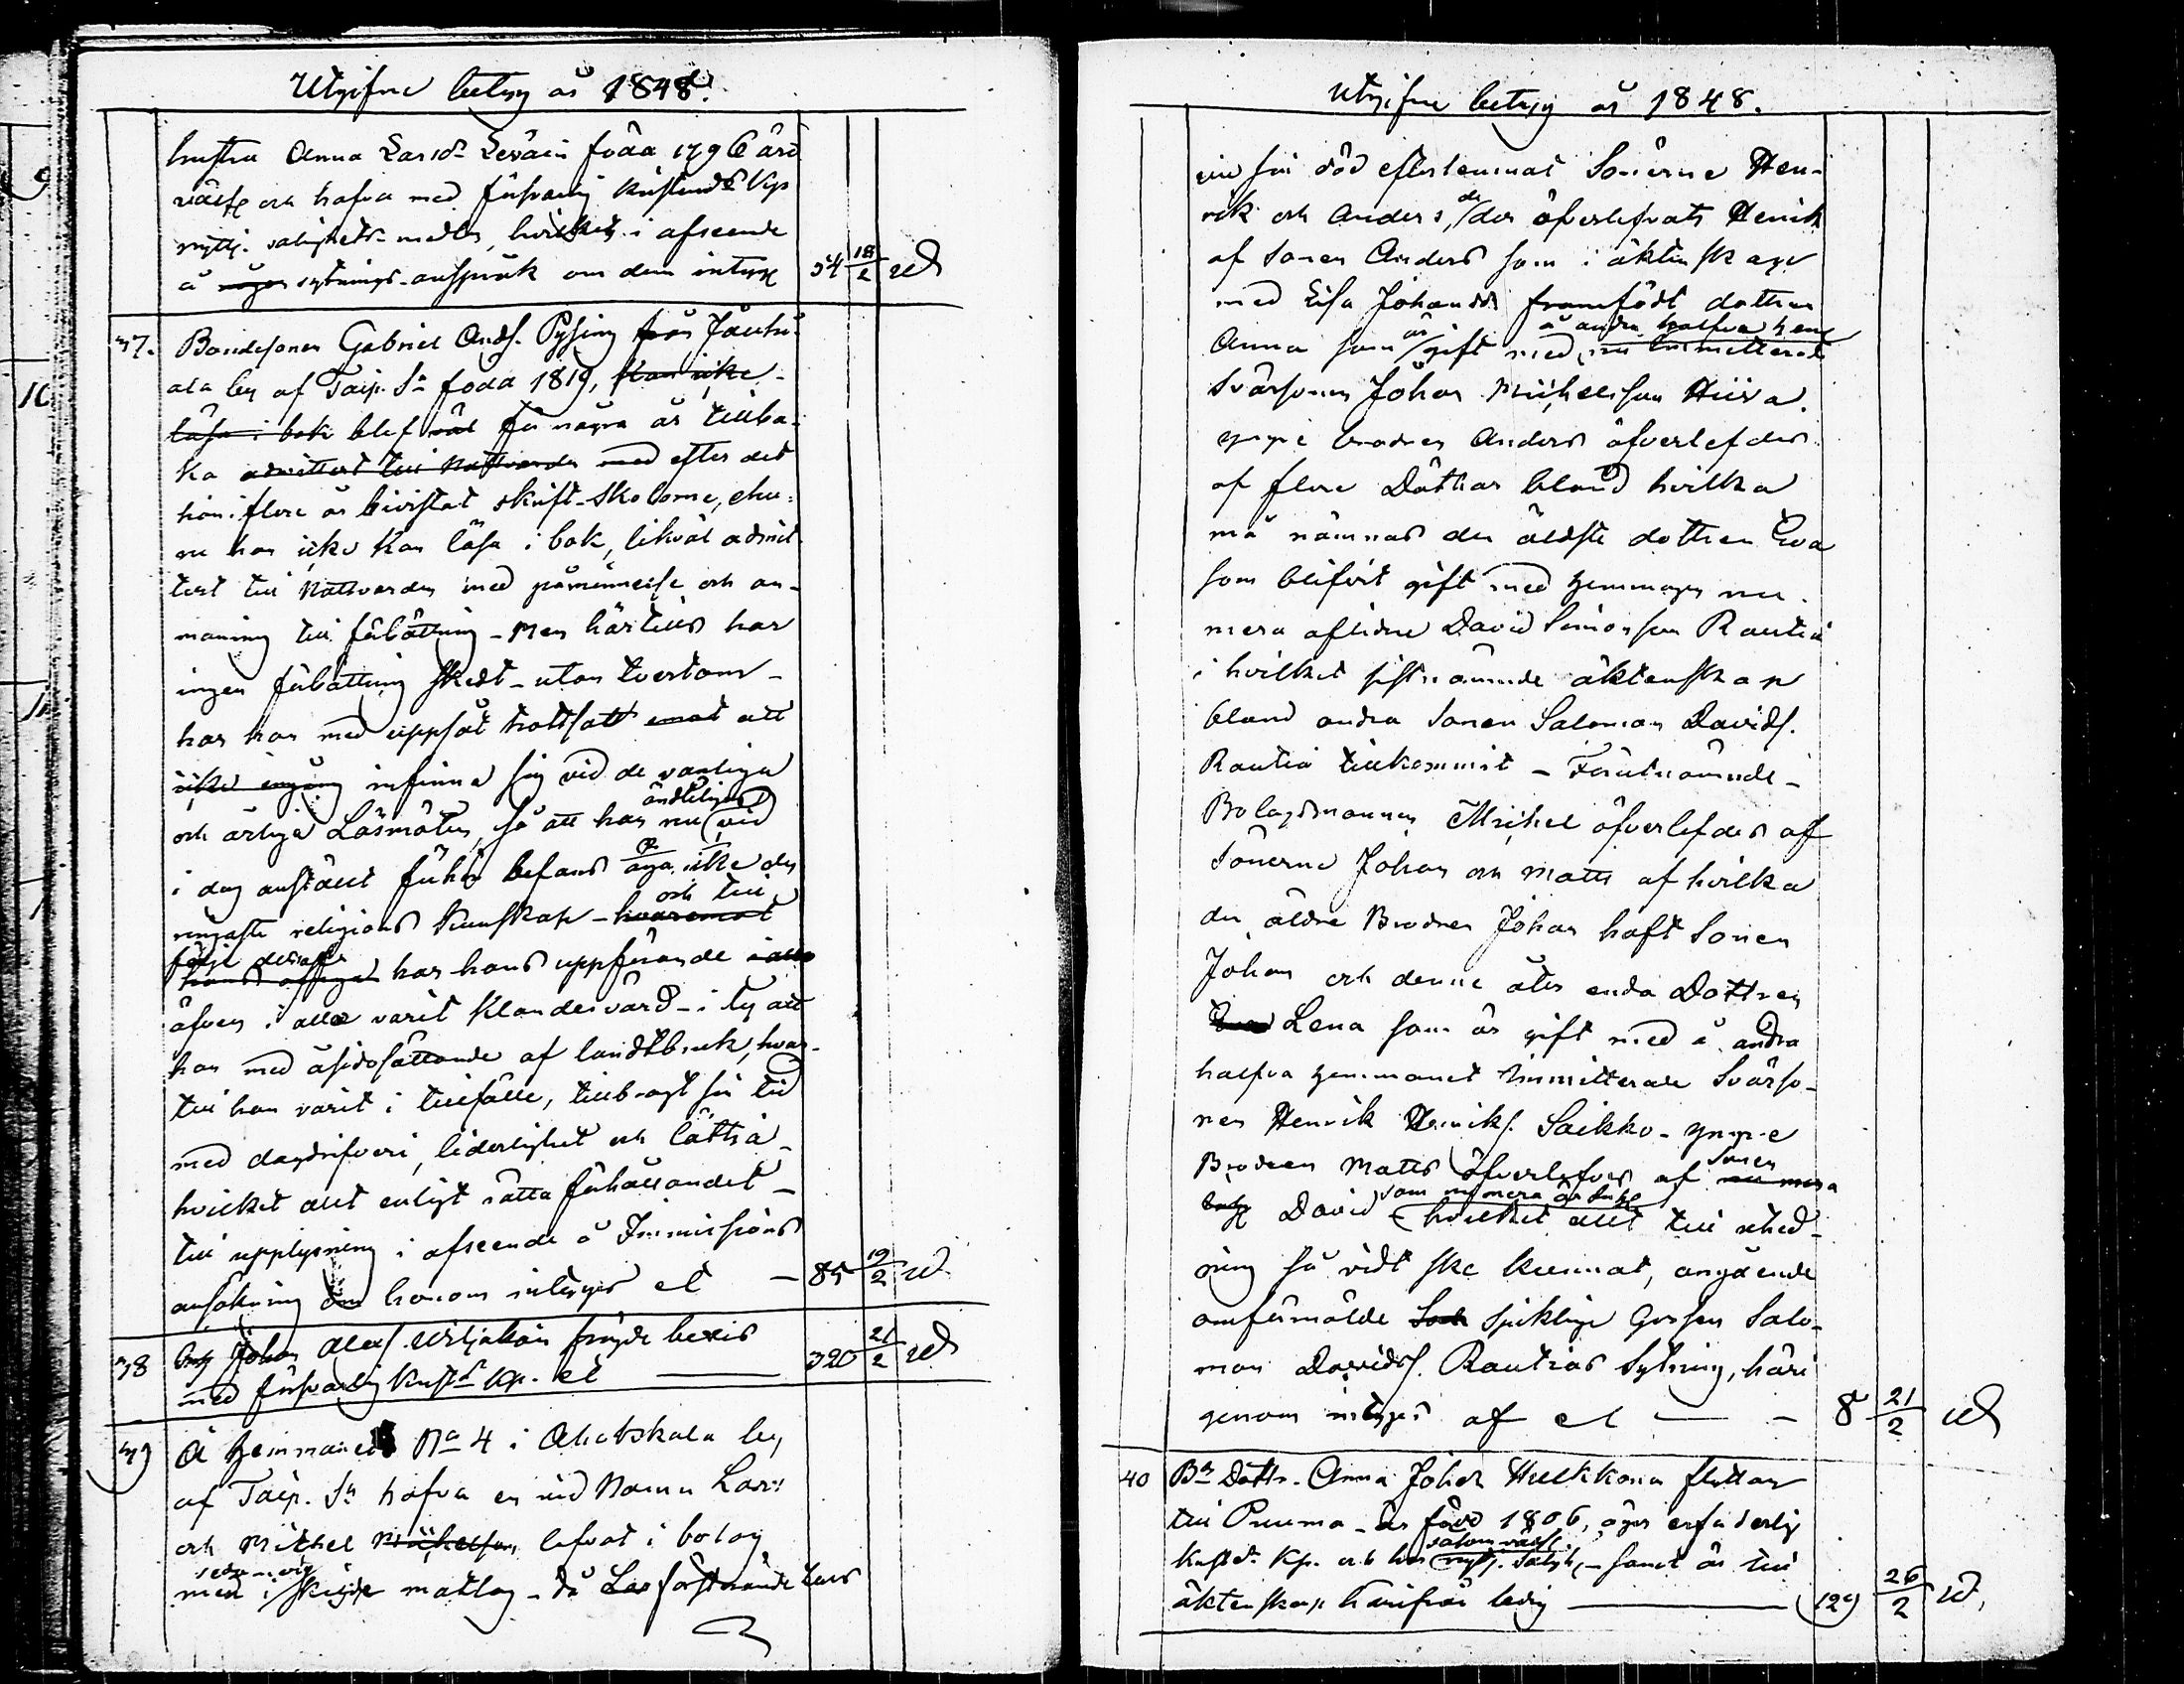 Utgifne betyg år 1848.
hustru Anna Larsdr Leväin född 1796 äro
välfr. och hafva med försvarlig kristend:s Kp
nyttj. salighets-medlen, hvilket i afseende
å någon sytnings-anspråk om dem intyg 54 18/2 ud
37. Bondesonen Gabriel Ands. Pysing från Jäuhi-
ala by af Taip. Sn född 1819, kan icke
läsa i bok blef väl för några år tillba-
ka admitterad till Nattvarden med efter det
han i flere år bivistat skrift-skolorne, ehu-
ru han icke kan läsa i bok, likväl admit-
terat till Nattvarden med påminnelse och an-
maning till förbättring - Men härtills har
ingen förbättring skedt - utan tvertom -
har han med uppsåt trottsatt emot att
icke engång infinna sig vid de vanliga
och årliga Läsmöten, så att han nu ändteligen vid
i dag anstäldt förhör befans äga icke den
ringaste religions kunskap - hvaremot och till
följe deraf har hans uppförande i allo
äfven i allo varit klandervärd - i ty att
han med åsidosättande af landtbruk, hvar-
till han varit i tillfälle, tillbragt sin tid
med dagdrifveri, liderlighet och lättja -
hvilket allt enligt rätta förhållandet -
till upplysning i afseende å Immissions
ansökning om honom intygas et — 85 19/2 ud
38 Johan Alexs. Viljakain frägde bevis
med försvarlig krist:s Kp. et — 320 21/2 ud
39 Å hemmanet No 4 i Ahatskala by
af Taip. Sn hafva en vid Namn Lars
och Michel Michelson lefvat i bolag
sedermera
men i skildt matlag - då Lars förstnämnde Lars
Utgifne betyg år 1848.
vid sin död efterlemnat Sönerne Hen-
rik och Anders, de der öfverlefvats Henrik
af sonen Anders som i äktenskape
med Lisa Johansdr framfödt dottren
å andra halfva hem
Anna som är gift med nu immitterad
Svärsonen Johan Michelsson Hiira.
yngre brodren Anders öfverlefdes
af flere Döttrar bland hvilka
må nämnas den äldste dottren Eva
som blifvit gift med hemmagen nu-
mera aflidne David Simonsson Rautia
i hvilket sistnämnde äktenskap
bland andra sonen Salomon Davids.
Rautia tillkommit - Förutnämnde -
Bolagsmannen Michel öfverlefdes af
Sönerne Johan och Matts af hvilka
den äldre Brodren Johan haft Sonen
Johan och denne åter enda Dottren
Eva Lena som är gift med å andra
halfva hemmanet immitterade Svärso-
nen Henrik Henriks. Saikko - yngre
Brodren Matts öfverlefves af sonen numera
David som numera är hvilket allt till utred-
ning så vidt ske kunnat, angående
omförmälde Son sjuklige Gossen Salo-
mon Davids. Rautias Sytning, häri
genom intygas af et — 8 21/2 ud
40 Be Dottr. Anna Johsdr Hulkkonen flyttar
till Puuma - är född 1806, äger erforderlig
salomvälfr.
krist:s Kp. och har nyttj. Saligh. - samt är till
äktenskap härifrån ledig — 129 26/2 ud
9
10
11